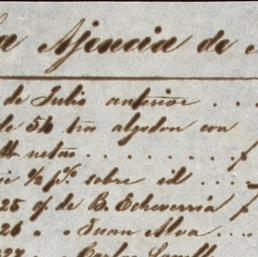 a Ajencia de
de Julio anterior . . . .
de 54 tros algodon con
netas . . . . . . . .
½ p% sobre id . . . .
25 q. de B. Echeverría
26 " " Juan Alva . . . .
27 " " Carlos